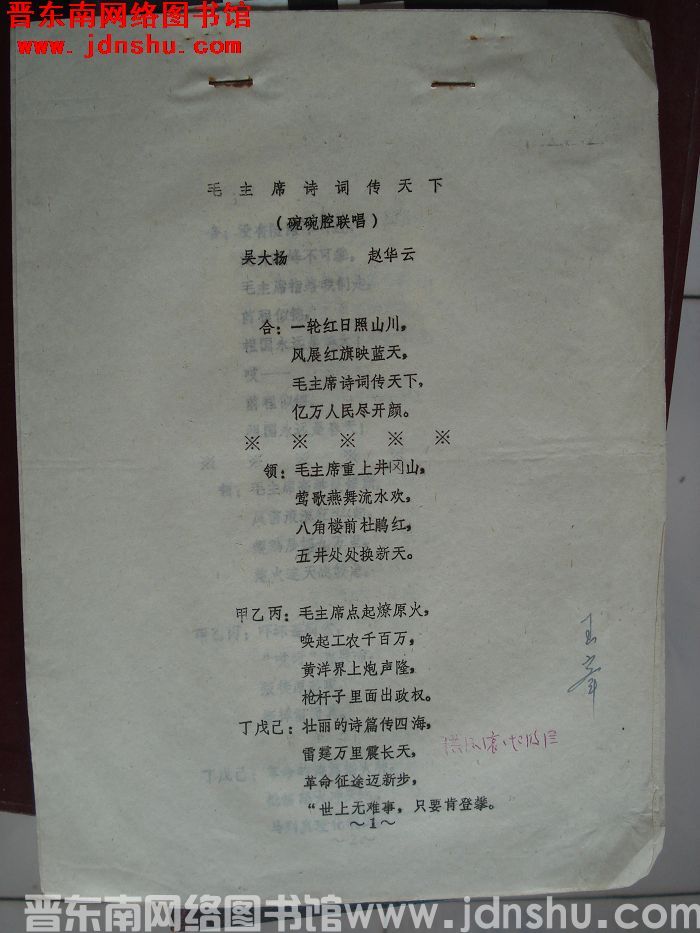 晋东南网络图书馆
www.jdnshu.com
毛主席诗词传天下
（碗碗腔联唱）
吴大扬 赵华云
合：一轮红日照山川，
风展红旗映蓝天，
毛主席诗词传天下，
亿万人民尽开颜。
※ ※ ※ ※ ※
领：毛主席重上井冈山，
莺歌燕舞流水欢，
八角楼前杜鹃红，
五井处处换新天。
甲乙丙：毛主席点起燎原火，
唤起工农千百万，
黄洋界上炮声隆，
枪杆子里面出政权。
丁戊己：壮丽的诗篇传四海，
雷霆万里震长天，
革命征途迈新步，
“世上无难事，只要肯登攀。
～1～
晋东南网络图书馆 www.jdnshu.com